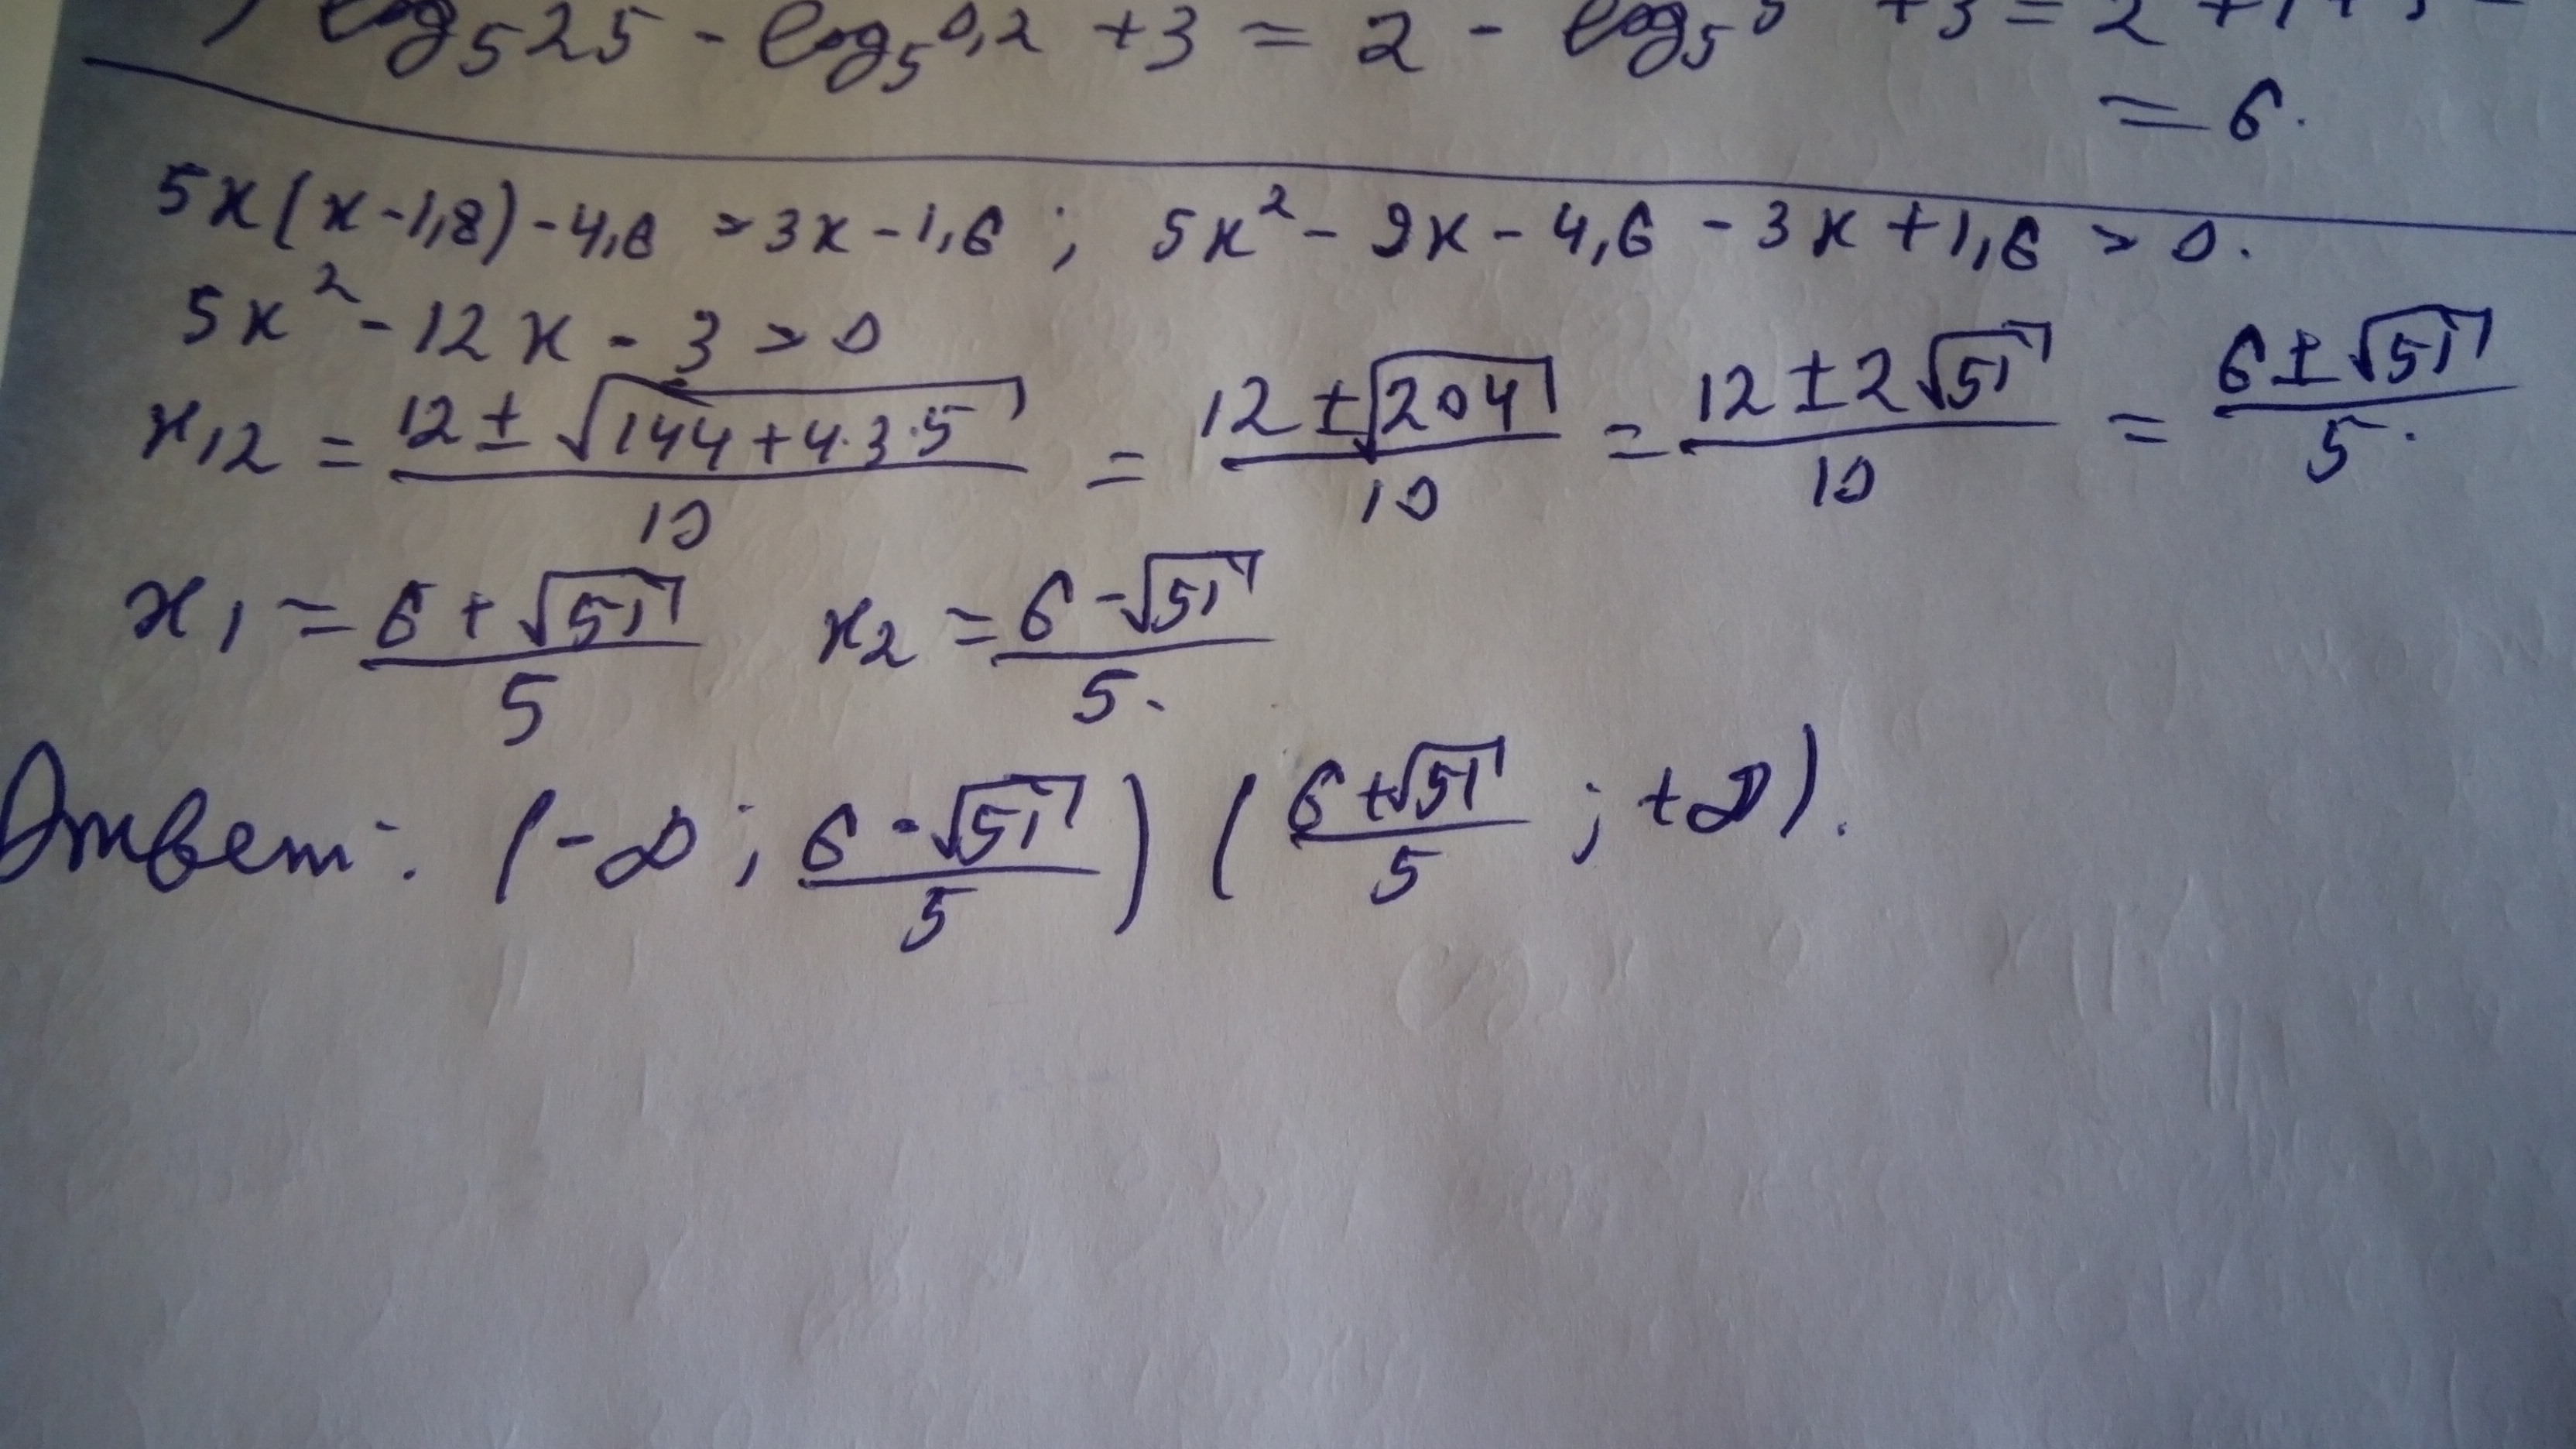 ) log₅25 - log₅0,2 + 3 = 2 - log₅5 + 3 = 2 + 1 +
= 6.
5x(x-1,8)-4,6 > 3x-1,6; 5x² - 9x - 4,6 - 3x + 1,6 > 0.
5x² - 12x - 3 > 0
x₁,₂ = (12 ± √(144+4·3·5))/10 = (12 ± √204)/10 = (12 ± 2√51)/10 = (6 ± √51)/5.
x₁ = (6 + √51)/5 x₂ = (6 - √51)/5.
Ответ: (-∞; (6 - √51)/5) ((6 + √51)/5; +∞).